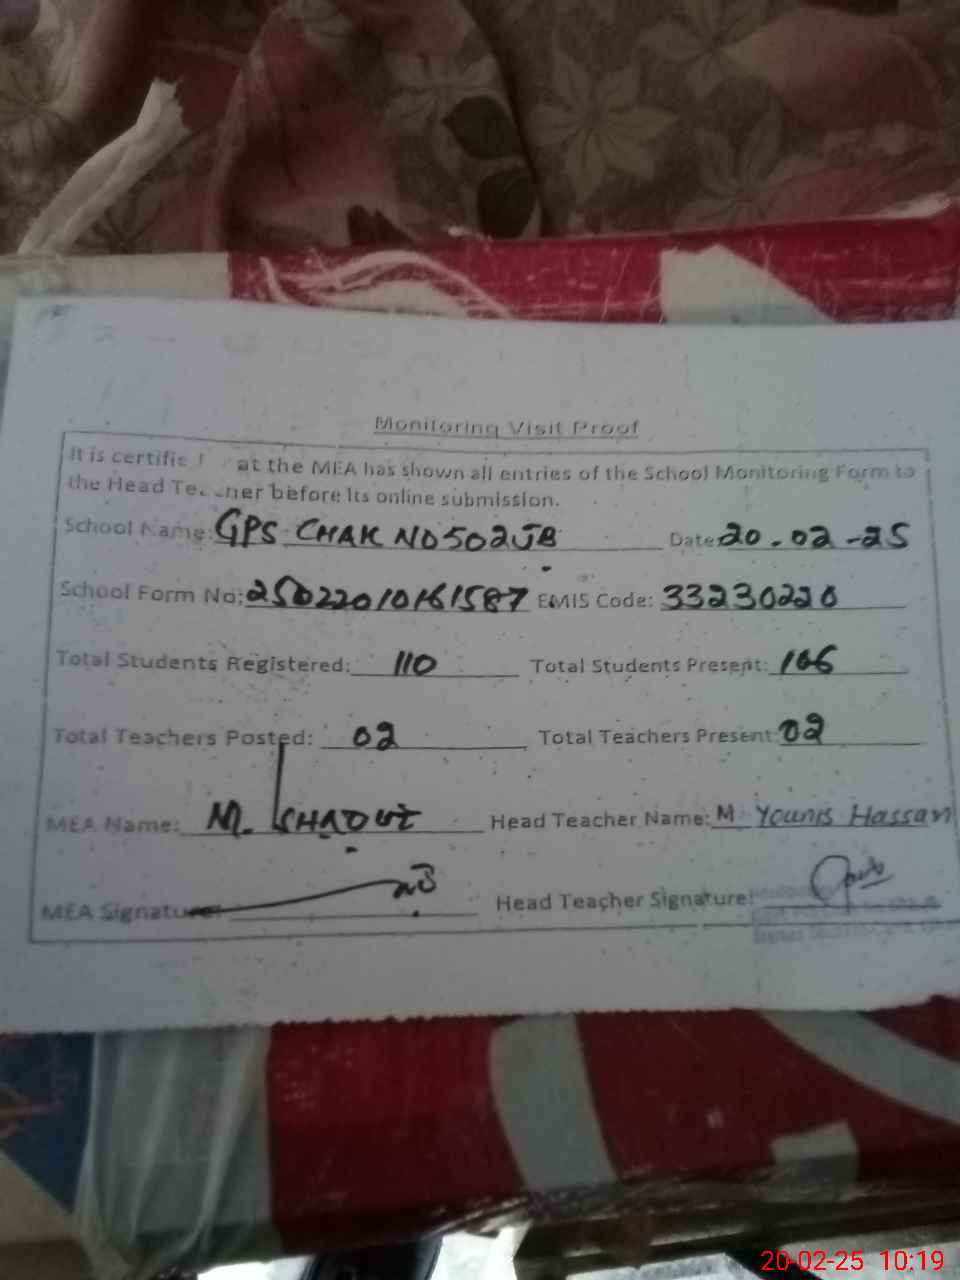 Monitoring Visit Proof
It is certifie at the MEA has shown all entries of the School Monitoring Form to
the Head Te ner before Its online submission.
School Name: GPS CHAK NO 502 JB Date: 20-02-25
School Form No: 25022010161587 EMIS Code: 33230220
Total Students Registered: 110 Total Students Present: 106
Total Teachers Posted: 02 Total Teachers Present: 02
MEA Name: M. Head Teacher Name: M. Younis Hassan
MEA Signature: Head Teacher Signature:
20-02-25 10:19